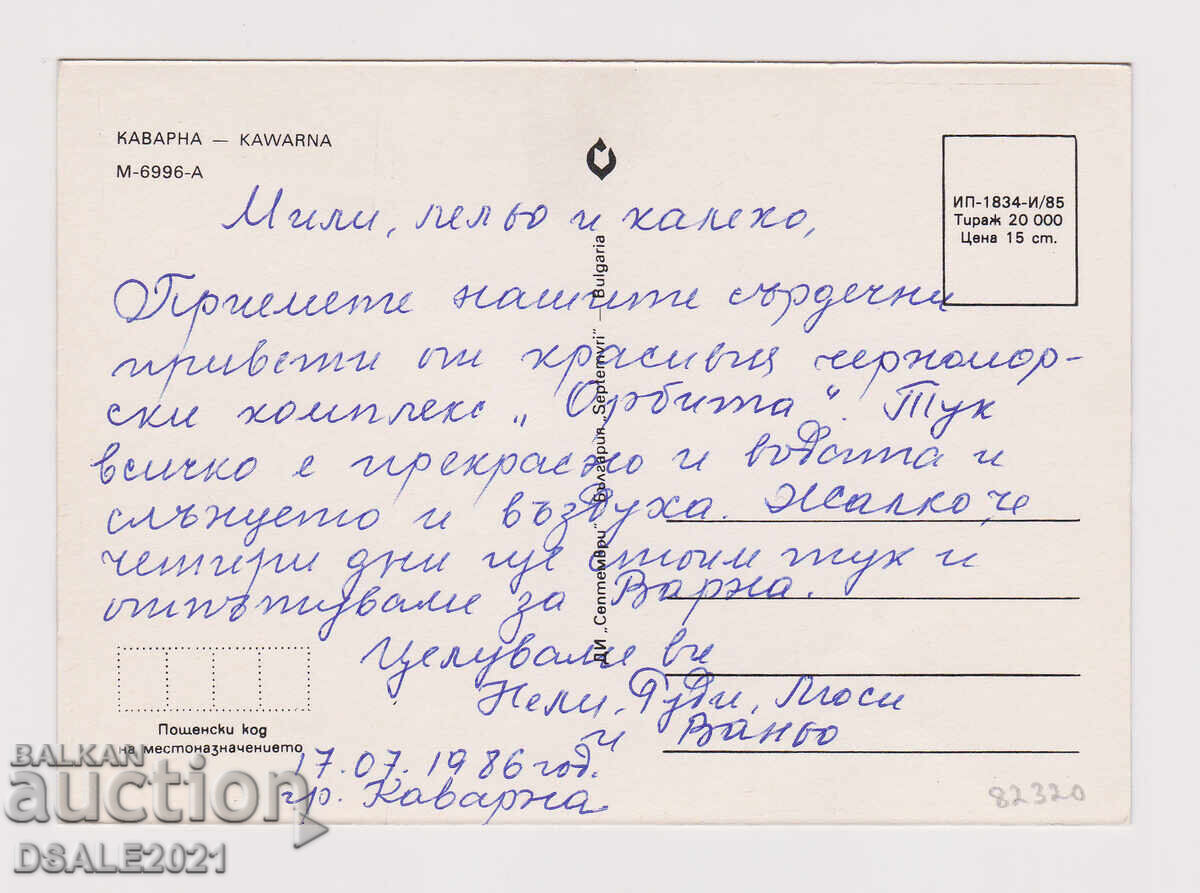 КАВАРНА — KAWARNA
М-6996-А
ИП-1834-И/85
Тираж 20 000
Цена 15 ст.
Мили, лельо и калеко,
Приемете нашите сърдечни
привети от красивия черномор-
ски комплекс „Орбита“. Тук
всичко е прекрасно и водата и
слънцето и въздуха. Жалко, че
четири дни ще стоим тук и
отпътувале за Варна.
Целувале ви
Нели, Руди, Люси
и Ваньо
17.07.1986 год.
гр. Каварна
ДИ „Септември“ България „Septemvri“ — Bulgaria
Пощенски код
на местоназначението
82320
BALKAN
auction
DSALE2021